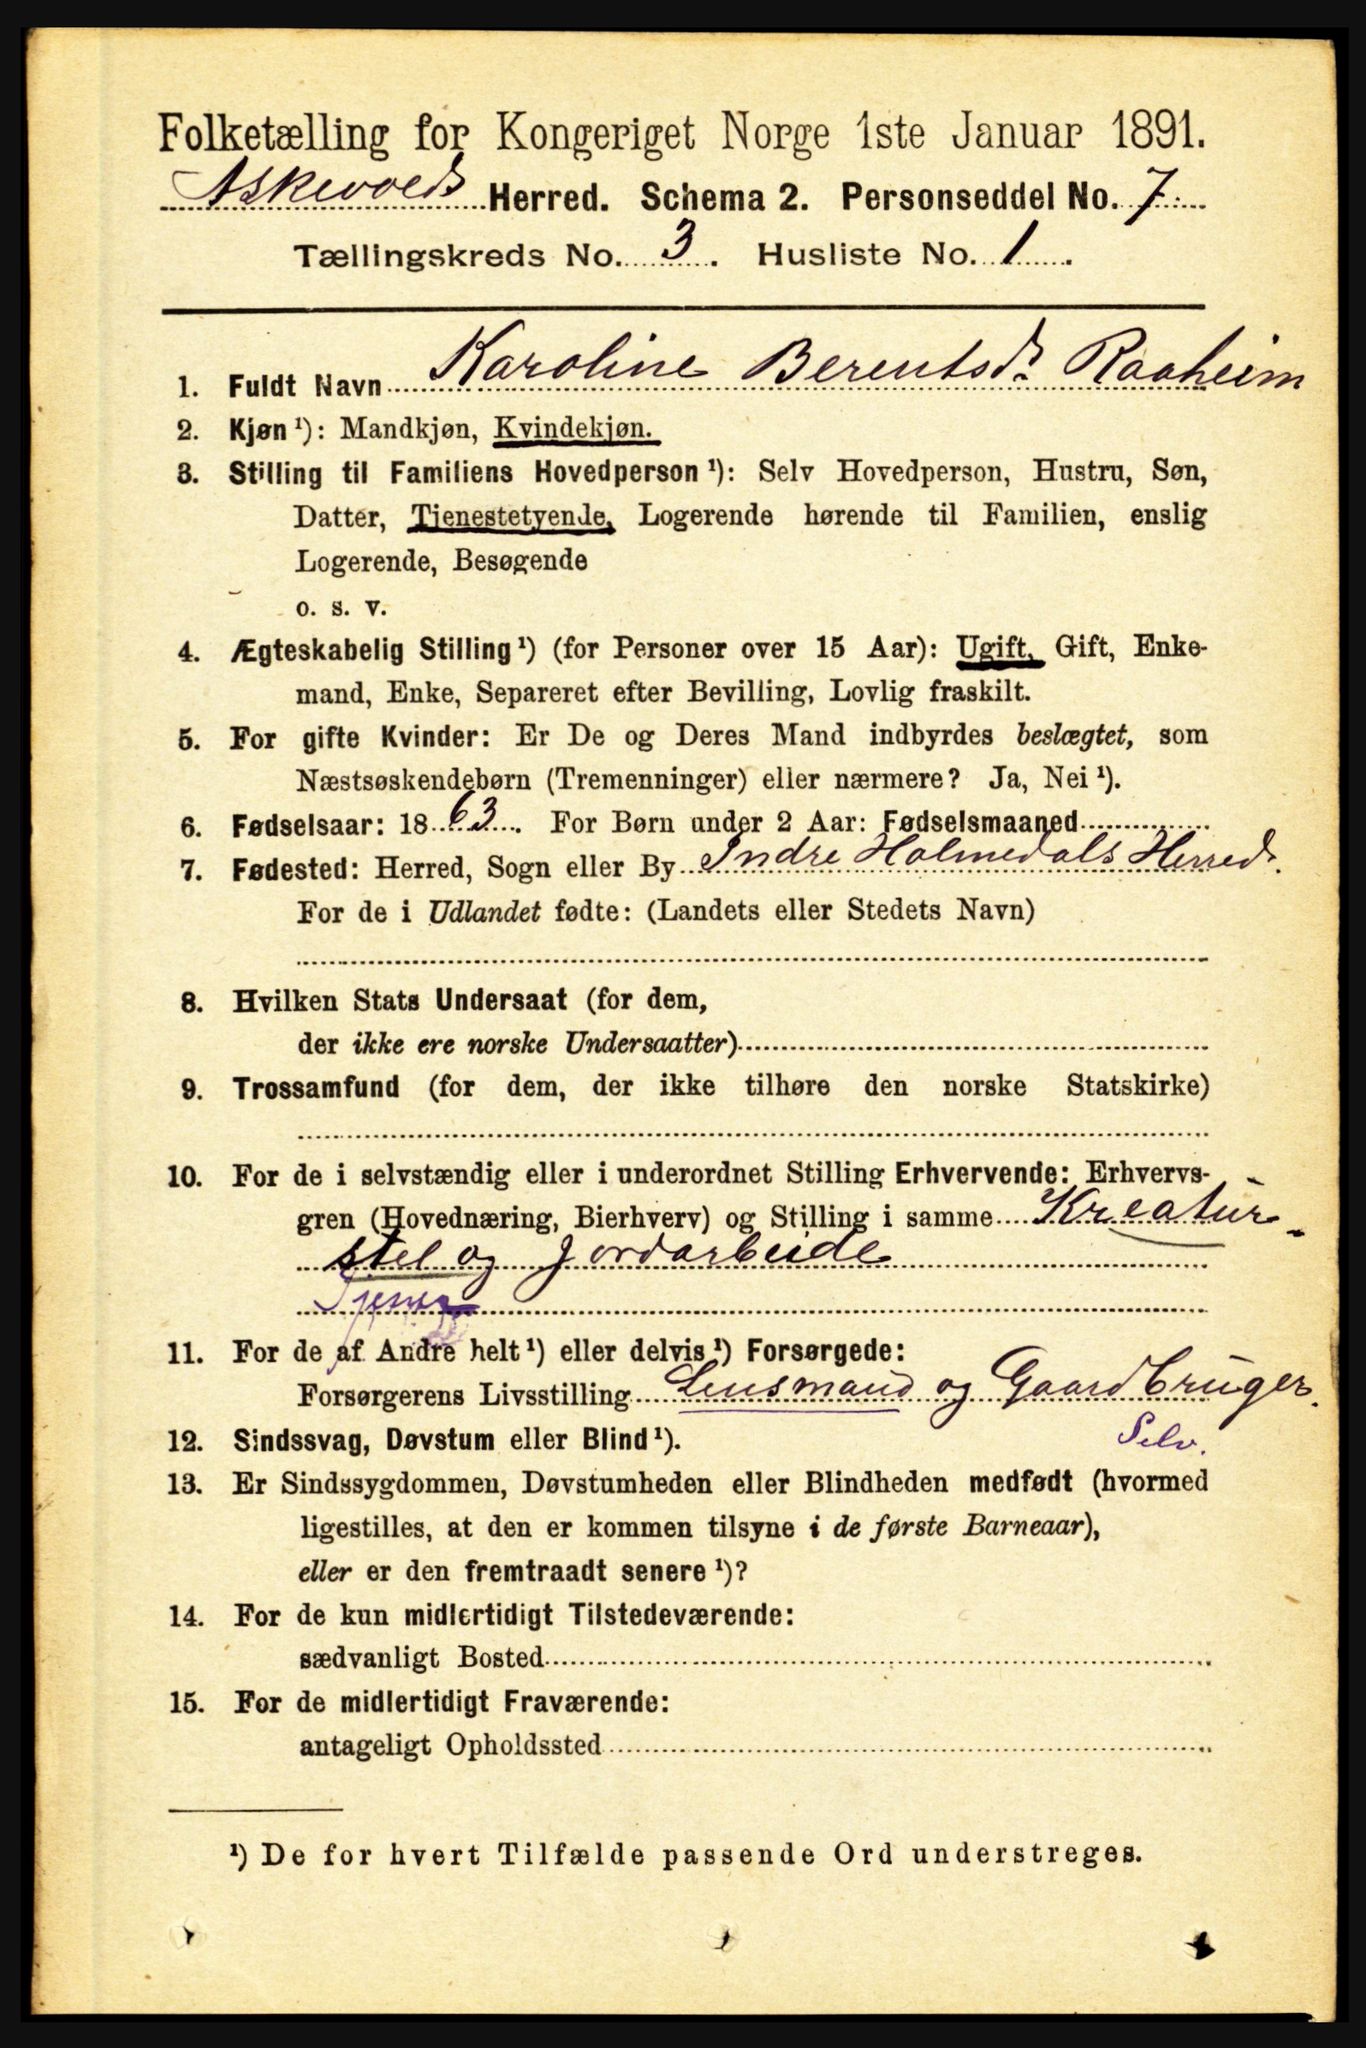 Folketælling for Kongeriget Norge 1ste Januar 1891.
Askevolds Herred. Schema 2. Personseddel No. 7
Tællingskreds No. 3. Husliste No. 1.
1. Fuldt Navn Karoline Berentsd. Raaheim
2. Kjøn ¹): Mandkjøn, Kvindekjøn.
3. Stilling til Familiens Hovedperson ¹): Selv Hovedperson, Hustru, Søn,
Datter, Tjenestetyende, Logerende hørende til Familien, enslig
Logerende, Besøgende
o. s. v.
4. Ægteskabelig Stilling ¹) (for Personer over 15 Aar): Ugift, Gift, Enke-
mand, Enke, Separeret efter Bevilling, Lovlig fraskilt.
5. For gifte Kvinder: Er De og Deres Mand indbyrdes beslægtet, som
Næstsøskendebørn (Tremenninger) eller nærmere? Ja, Nei ¹).
6. Fødselsaar: 1863. For Børn under 2 Aar: Fødselsmaaned
7. Fødested: Herred, Sogn eller By Indre Holmedals Herred.
For de i Udlandet fødte: (Landets eller Stedets Navn)
8. Hvilken Stats Undersaat (for dem,
der ikke ere norske Undersaatter)
9. Trossamfund (for dem, der ikke tilhøre den norske Statskirke)
10. For de i selvstændig eller i underordnet Stilling Erhvervende: Erhvervs-
gren (Hovednæring, Bierhverv) og Stilling i samme Kreatur-
stel og Jordarbeide
Tjener
11. For de af Andre helt ¹) eller delvis ¹) Forsørgede:
Forsørgerens Livsstilling Lensmand og Gaardbruger.
Selv.
12. Sindssvag, Døvstum eller Blind ¹).
13. Er Sindssygdommen, Døvstumheden eller Blindheden medfødt (hvormed
ligestilles, at den er kommen tilsyne i de første Barneaar),
eller er den fremtraadt senere ¹)?
14. For de kun midlertidigt Tilstedeværende:
sædvanligt Bosted
15. For de midlertidigt Fraværende:
antageligt Opholdssted
¹) De for hvert Tilfælde passende Ord understreges.